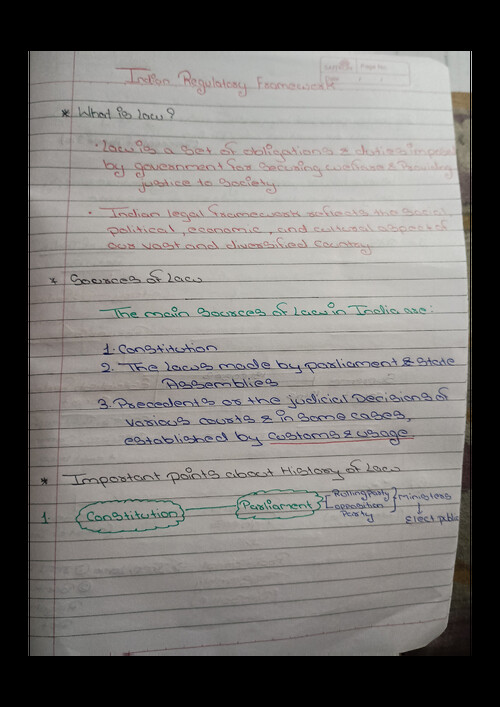 Page No.
Date / /
Indian Regulatory Framework
* What is Law?
· Law is a set of obligations & duties impose
by government for securing welfare & Providing
justice to society
· Indian legal framework reflects the social,
political, economic, and cultural aspect of
our vast and diversified country
* Sources of Law
The main sources of Law in India are:
1. Constitution
2. The Laws made by parliament & state
Assemblies
3. Precedents or the judicial Decisions of
various courts & in some cases,
established by customs & usage
* Important points about History of Law
1. Constitution Parliament Rulling Party Ministers
opposition
Party Elect public